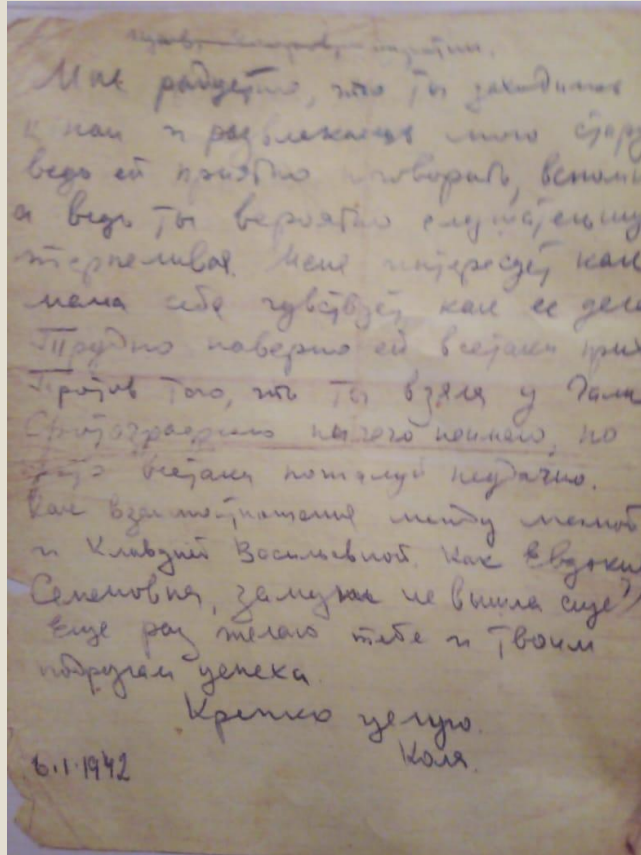 Мне радостно, что ты заходишь
к нам и развлекаешь мою
ведь ей приятно поговорить,
а ведь ты вероятно слушательница
терпеливая. Меня интересует как
мама себя чувствует как ее дела
Трудно наверно ей всетаки
Против того, что ты взяла у Гали
Фотографию ничего неимею, но
это всетаки пожалуй неудачно.
Как взаимоотношения между мамой
и Клавдией Васильевной. Как Евдокия
Семеновна, замуж не вышла еще?
Еще раз желаю тебе и твоим
подругам успеха.
Крепко целую.
Коля.
6.1.1942